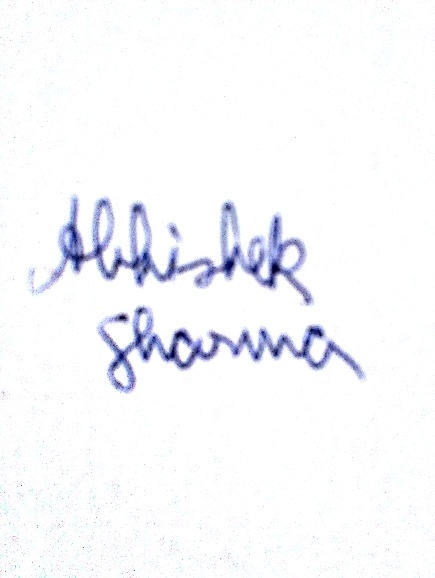 Abhishek
Sharma